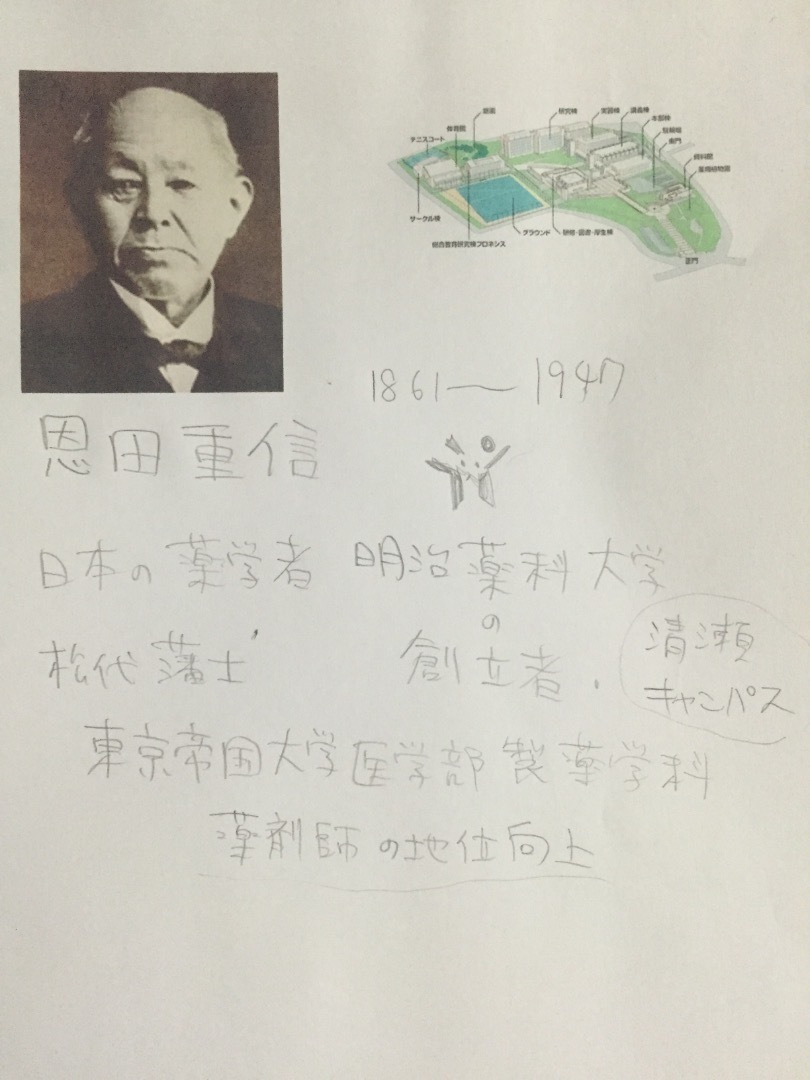 新宿
研究棟
実習棟
講義棟
本部棟
駐輪場
東門
資料館
薬用植物園
体育館
テニスコート
サークル棟
総合教育研究棟フロネシス
グラウンド
研修・図書・厚生棟
正門
1861—1947
恩田重信
日本の薬学者 明治薬科大学
の
松代藩士 創立者.
清瀬
キャンパス
東京帝国大学医学部製薬学科
薬剤師の地位向上